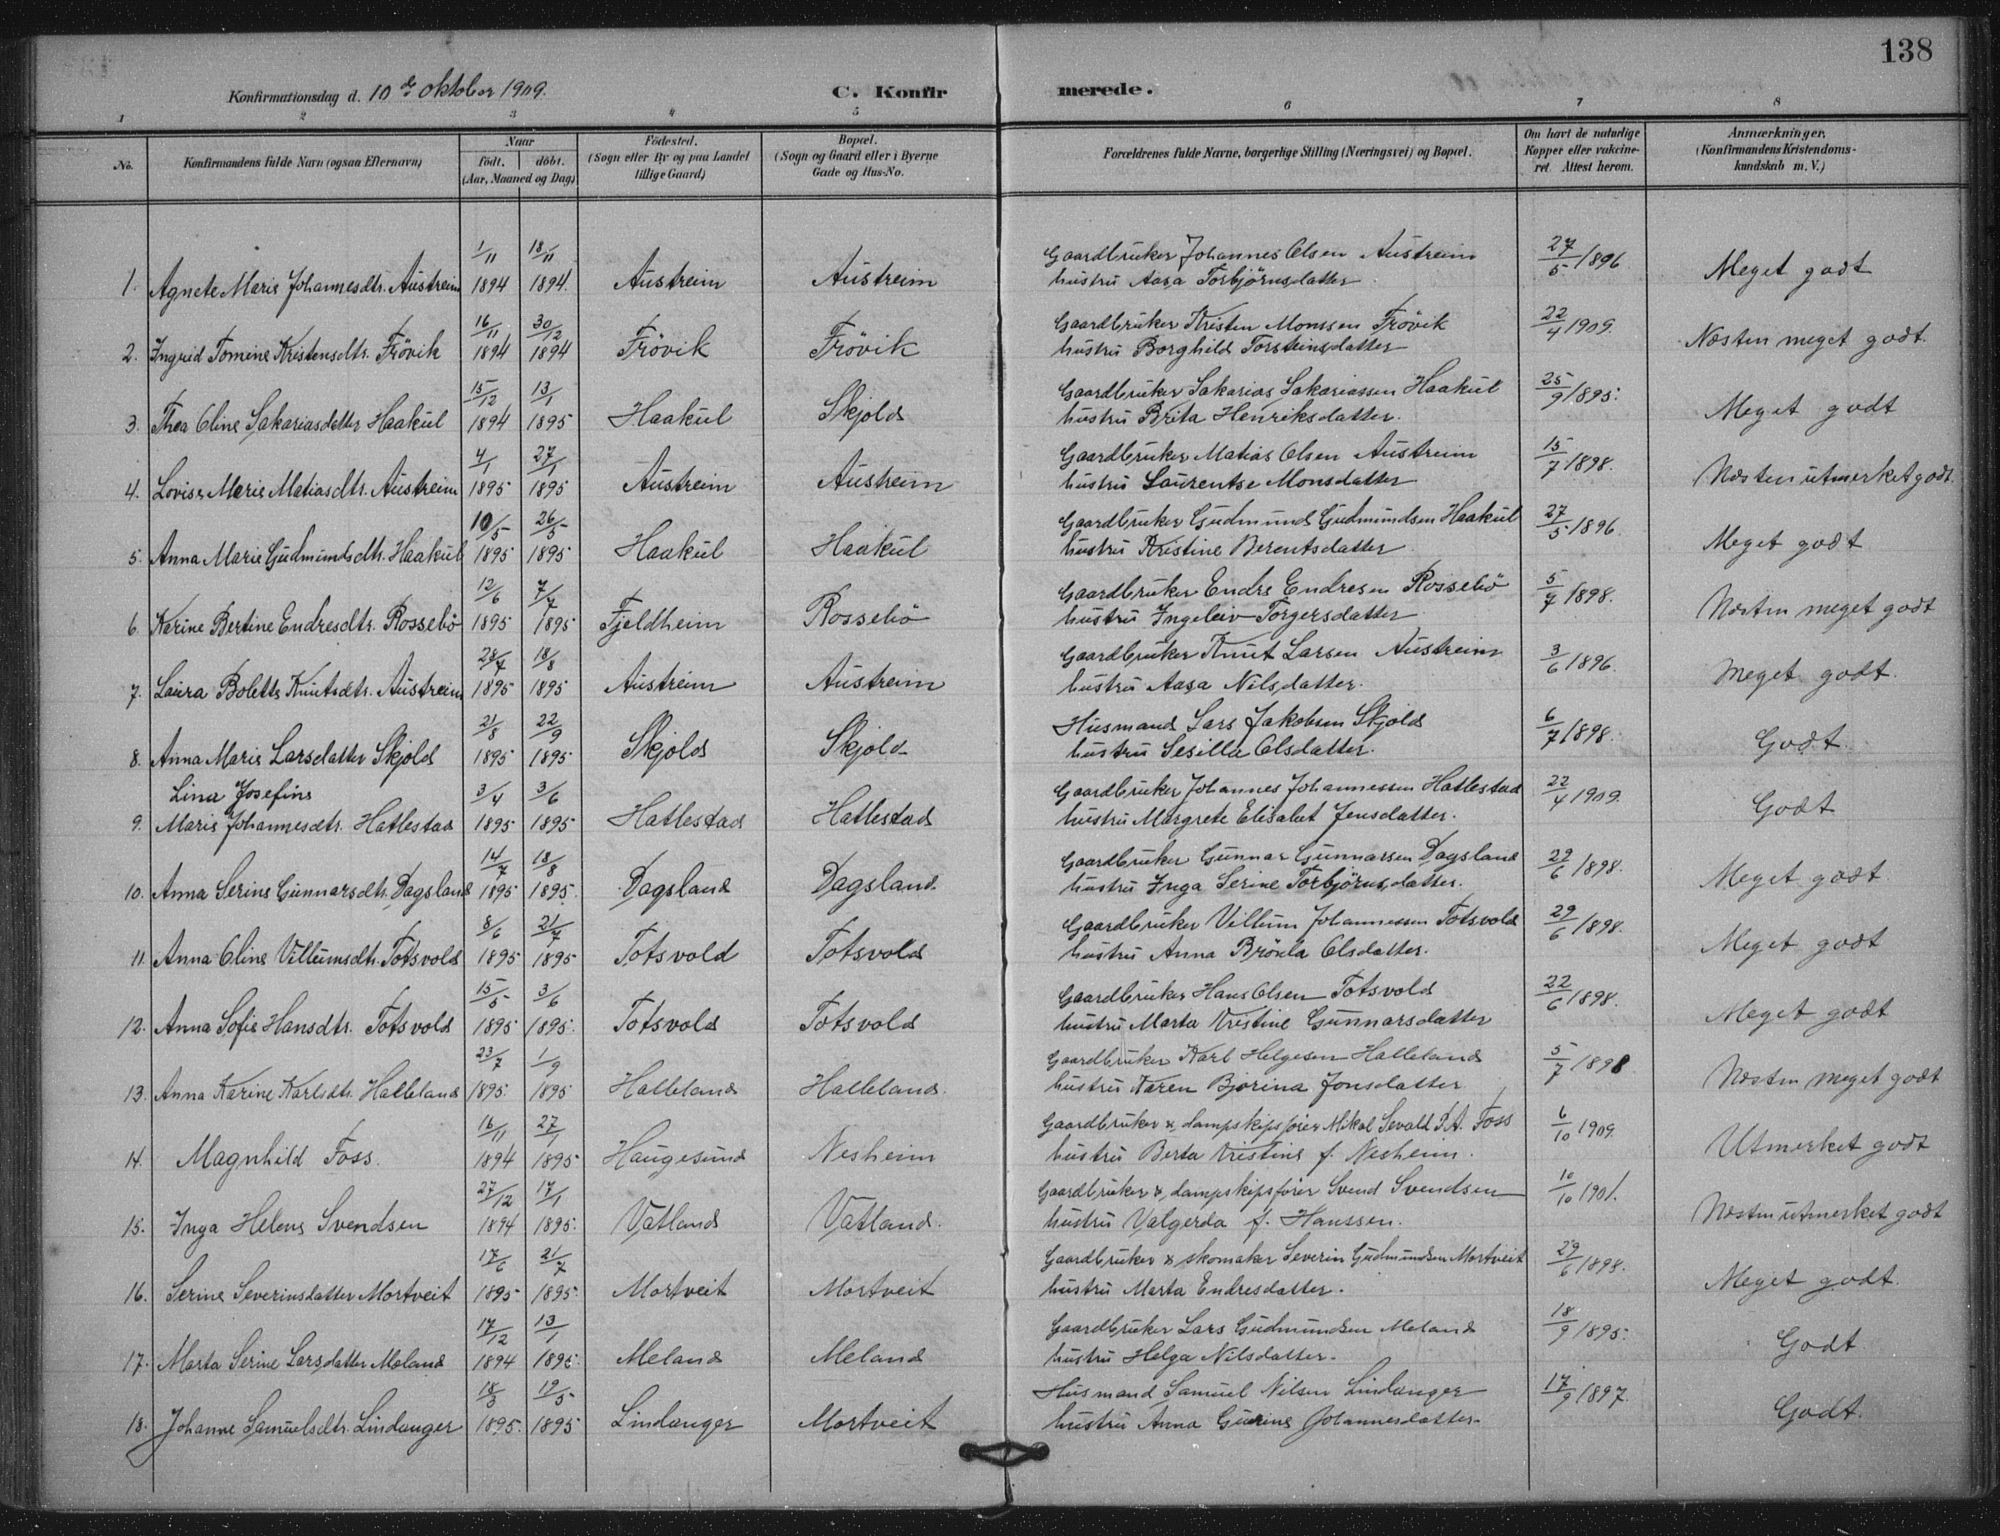 138
Konfirmationsdag d. 10 de oktober 1909. C. Konfirmerede.
1 2 3 4 5 6 7 8
No. Konfirmandens fulde Navn (ogsaa Efternavn) Naar født. døbt. (Aar, Maaned og Dag) Fødested. (Sogn eller By og paa Landet tillige Gaard) Bopæl. (Sogn og Gaard eller i Byerne Gade og Hus-No. Forældrenes fulde Navne, borgerlige Stilling (Næringsvei) og Bopæl. Om havt de naturlige Kopper eller vakcineret. Attest herom. Anmærkninger, (Konfirmandens Kristendomskundskab m. V.)
1/11 18/11 Gaardbruker Johannes Olsen Austreim 27/5 1896.
1. Agnete Marie Johannesdtr. Austreim 1894 1894. Austreim Austreim hustru Aasa Torbjørnsdatter. Meget godt
16/11 30/12 Gaardbruker Kristen Monssen Frövik 22/4 1909.
2. Ingrid Tomine Kristensdtr. Frövik 1894 1894 Frövik Frövik hustru Borghild Torsteinsdatter Næsten meget godt.
15/12 13/1 Gaardbruker Sakarias Sakariassen Haakul 25/9 1895.
3. Thea Oline Sakariasdatter Haakul 1894 1895 Haakul Skjold hustru Brita Henriksdatter. Meget godt
4/1 27/1 Gaardbruker Matias Olsen Austreim 15/7 1898.
4. Lovise Marie Matiasdtr. Austreim 1895 1895 Austreim Austreim hustru Laurentse Monsdatter Næsten utmerket godt.
10/5 26/5 Gaardbruker Gudmund Gudmundsen Haakul 27/5 1896.
5. Anna Marie Gudmundsdtr. Haakul 1895 1895 Haakul Haakul hustru Kristine Berentsdatter. Meget godt
12/6 7/7 Gaardbruker Endre Endresen Rossebö 5/7 1898.
6. Karine Bertine Endresdtr. Rossebö 1895 1895 Fjeldheim Rossebö hustru Ingeleiv Torgersdatter Næsten meget godt
28/7 18/8 Gaardbruker Knut Larsen Austreim 3/6 1896.
7. Laura Bolette Knutsdtr. Austreim 1895 1895 Austreim Austreim hustru Aasa Nilsdatter. Meget godt.
21/8 22/9 Husmand Lars Jakobsen Skjold 6/7 1898.
8. Anna Marie Larsdatter Skjold 1895 1895 Skjold Skjold hustru Sesilla Olsdatter. Godt.
Lina Josefine 3/4 3/6 Gaardbruker Johannes Johannessen Hatlestad 22/4 1909.
9. Marie Johannesdtr. Hatlestad 1895 1895 Hatlestad Hatlestad hustru Margrete Elisabet Jensdatter. Godt
14/7 18/8 Gaardbruker Gunnar Gunnarsen Dagsland 29/6 1898.
10. Anna Serine Gunnarsdtr. Dagsland 1895 1895. Dagsland Dagsland hustru Inga Serine Torbjørnsdatter. Meget godt
8/6 21/7 Gaardbruker Villum Johannessen Totsvold 29/6 1898.
11. Anna Oline Villumsdtr. Totsvold 1895 1895 Totsvold Totsvold hustru Anna Brönla Olsdatter. Meget godt
15/5 3/6 Gaardbruker Hans Olsen Totsvold 22/6 1898.
12. Anna Sofie Hansdtr. Totsvold 1895 1895. Totsvold Totsvold hustru Marta Kristine Gunnarsdatter Meget godt
23/7 1/9 Gaardbruker Karl Helgesen Halleland 5/7 1898
13. Anna Karine Karlsdtr. Halleland 1895. 1895 Halleland Halleland. hustru Karen Bjorina Jonsdatter Næsten meget godt
16/11 27/1 Gaardbruker &, dampskipsfører Mikal Sevald P.A. Foss 6/10 1909.
14. Magnhild Foss. 1894 1895 Haugesund Nesheim hustru Berta Kristine f. Nesheim. Utmerket godt
27/12 17/1 Gaardbruker &, dampskipsfører Svend Svendsen 10/10 1901.
15. Inga Helene Svendsen 1894 1895. Vatland Vatland. hustru Valgerda f. Hanssen. Næsten utmerket godt
17/6 21/7 Gaardbruker & skomaker Severin Gudmundsen Mortveit 29/6 1898.
16. Serine Severinsdatter Mortveit 1895 1895. Mortveit Mortveit hustru Marta Endresdatter. Meget godt.
17/12 13/1 Gaardbruker Lars Gudmundsen Meland 18/9 1895.
17. Marta Serine Larsdatter Meland 1894 1895. Meland Meland hustru Helga Nilsdatter. Godt
18/3 19/5 Husmand Samuel Nilsen Lindanger 17/9 1897.
18. Johanne Samuelsdtr. Lindanger 1895. 1895 Lindanger Mortveit hustru Anna Gurine Johannesdatter. Godt.